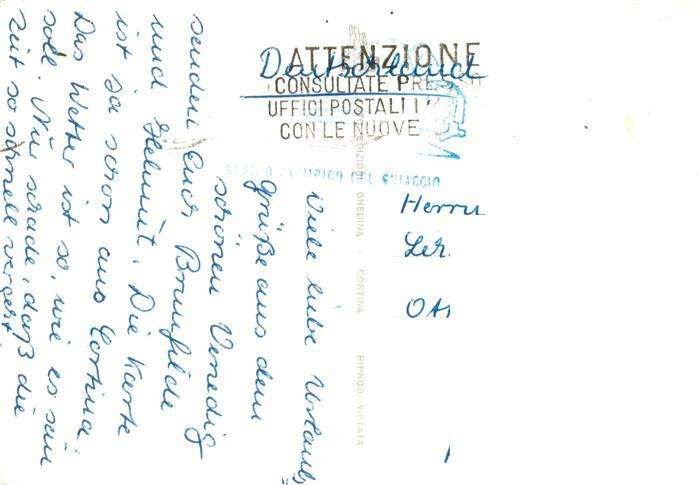 Viele liebe Urlaubs=
Grüße aus dem
schönen Venedig
senden Euch Brunhilde
und Helmut. Die Karte
ist ja schon aus Cortina.
Das Wetter ist so, wie es sein
soll. Nur schade, daß die
Zeit so schnell vergeht.
Deutschland
ATTENZIONE
CONSULTATE
UFFICI POSTALI
CON LE NUOVE
STADIO OLIMPICO DEL GHIACCIO
Herrn
GHEDINA - CORTINA RIPROD. VIETATA